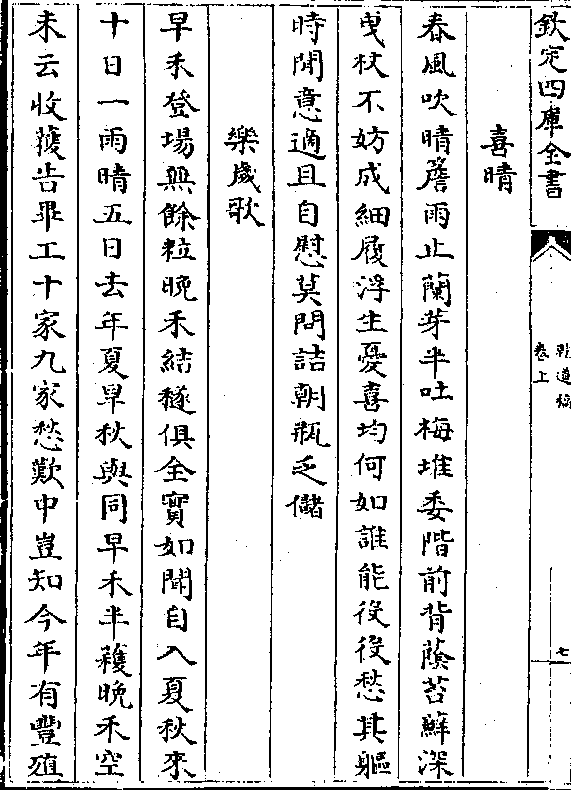 欽定四庫全書
乾道稿
卷上
七
喜晴
春風吹晴簷雨止蘭芽半吐梅堆委階前背蔭苔蘚深
曳杖不妨成細履浮生憂喜均何如誰能役役愁其軀
時聞意適且自慰莫問詰朝瓶乏儲
樂歲歌
早禾登場無餘粒晚禾結穟俱全實如聞自入夏秋來
十日一雨晴五日去年夏旱秋與同早禾半穫晚禾空
未云收穫告畢工十家九家愁歎中豈知今年有豐殖